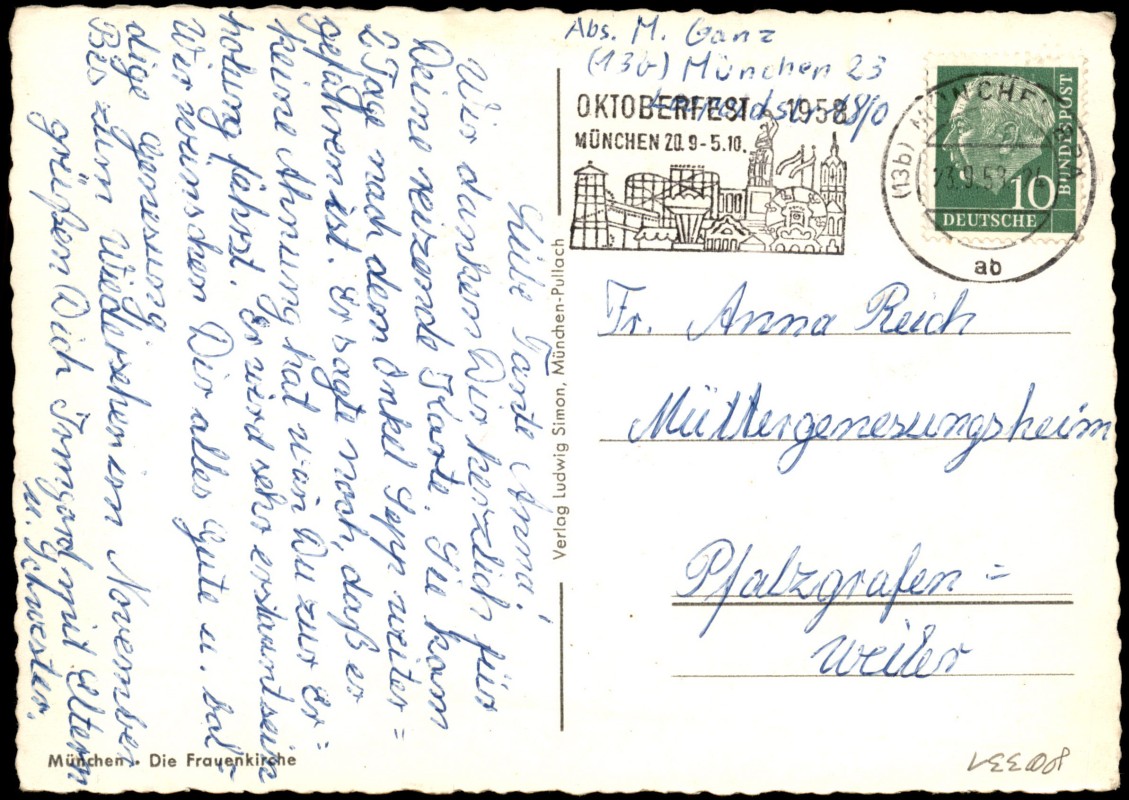 Abs. M. Ganz
(13b) München 23
18/0
OKTOBERFEST 1958
MÜNCHEN 20.9-5.10.
(13b) MÜNCHEN
23.9.58-21
ab
10
DEUTSCHE
BUNDESPOST
Liebe Tante Anna!
Wir danken Dir herzlich für
Deine reizende Karte. Sie kam
2 Tage nach dem Onkel Sepp weiter=
gefahren ist. Er sagte noch, daß er
keine Ahnung hat wan Du zur Er=
holung fährst. Er wird sehr erstaunt sein
Wir wünschen Dir alles Gute u. bal-
dige Genesung
Bis zum Wiedersehen im November
grüßen Dich Irmgard mit Eltern
u. Schwester.
Verlag Ludwig Simon, München-Pullach
Fr. Anna Reich
Müttergenesungsheim
Pfalzgrafen=
weiler
München · Die Frauenkirche